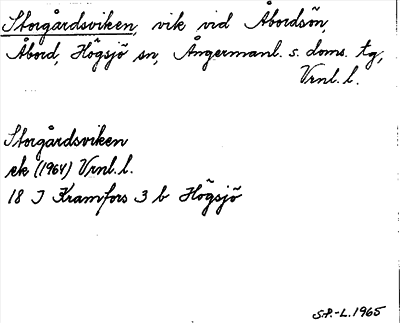 Storgårdsviken, vik vid Åbordsön,
Åbord, Högsjö sn, Ångermanl. s. doms. tg,
Vrnl. l.
Storgårdsviken
ek (1964) Vrnl. l.
18 J Kramfors 3 b Högsjö
S.P.-L. 1965